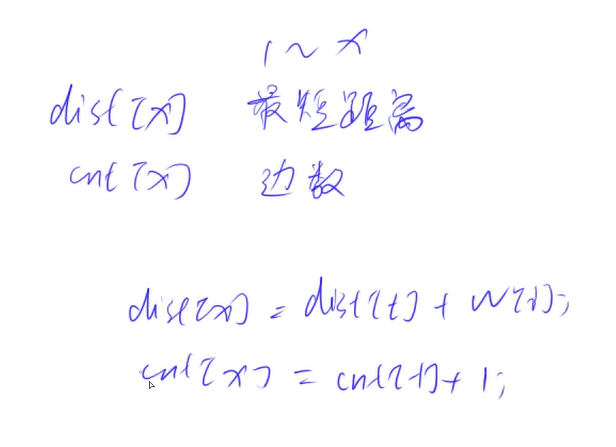 1 ~ x
dist[x] 最短距离
cnt[x] 边数
dist[x] = dist[t] + w[i];
cnt[x] = cnt[t] + 1;